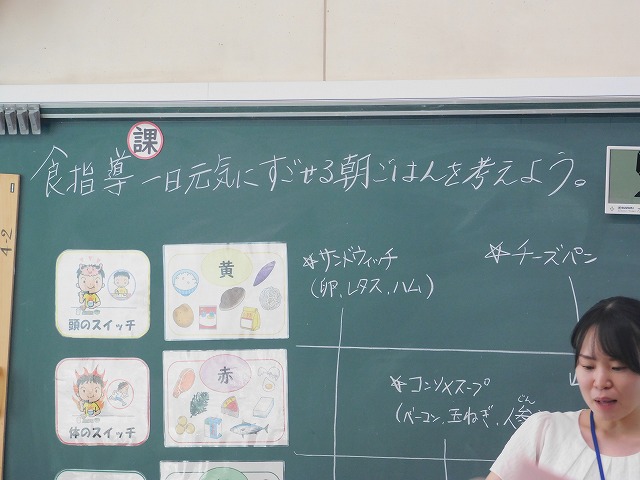 課
食指導 一日元気にすごせる朝ごはんを考えよう。
A-2
頭のスイッチ
黄
☆サンドウィッチ
(卵、レタス、ハム)
☆チーズパン
体のスイッチ
赤
☆コンソメスープ
(ベーコン、玉ねぎ、人参
じん